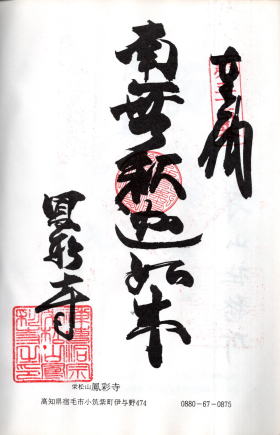 奉拝
南無釈迦如来
鳳彩寺
栄松山鳳彩寺
高知県宿毛市小筑紫町伊与野474 0880-67-0875